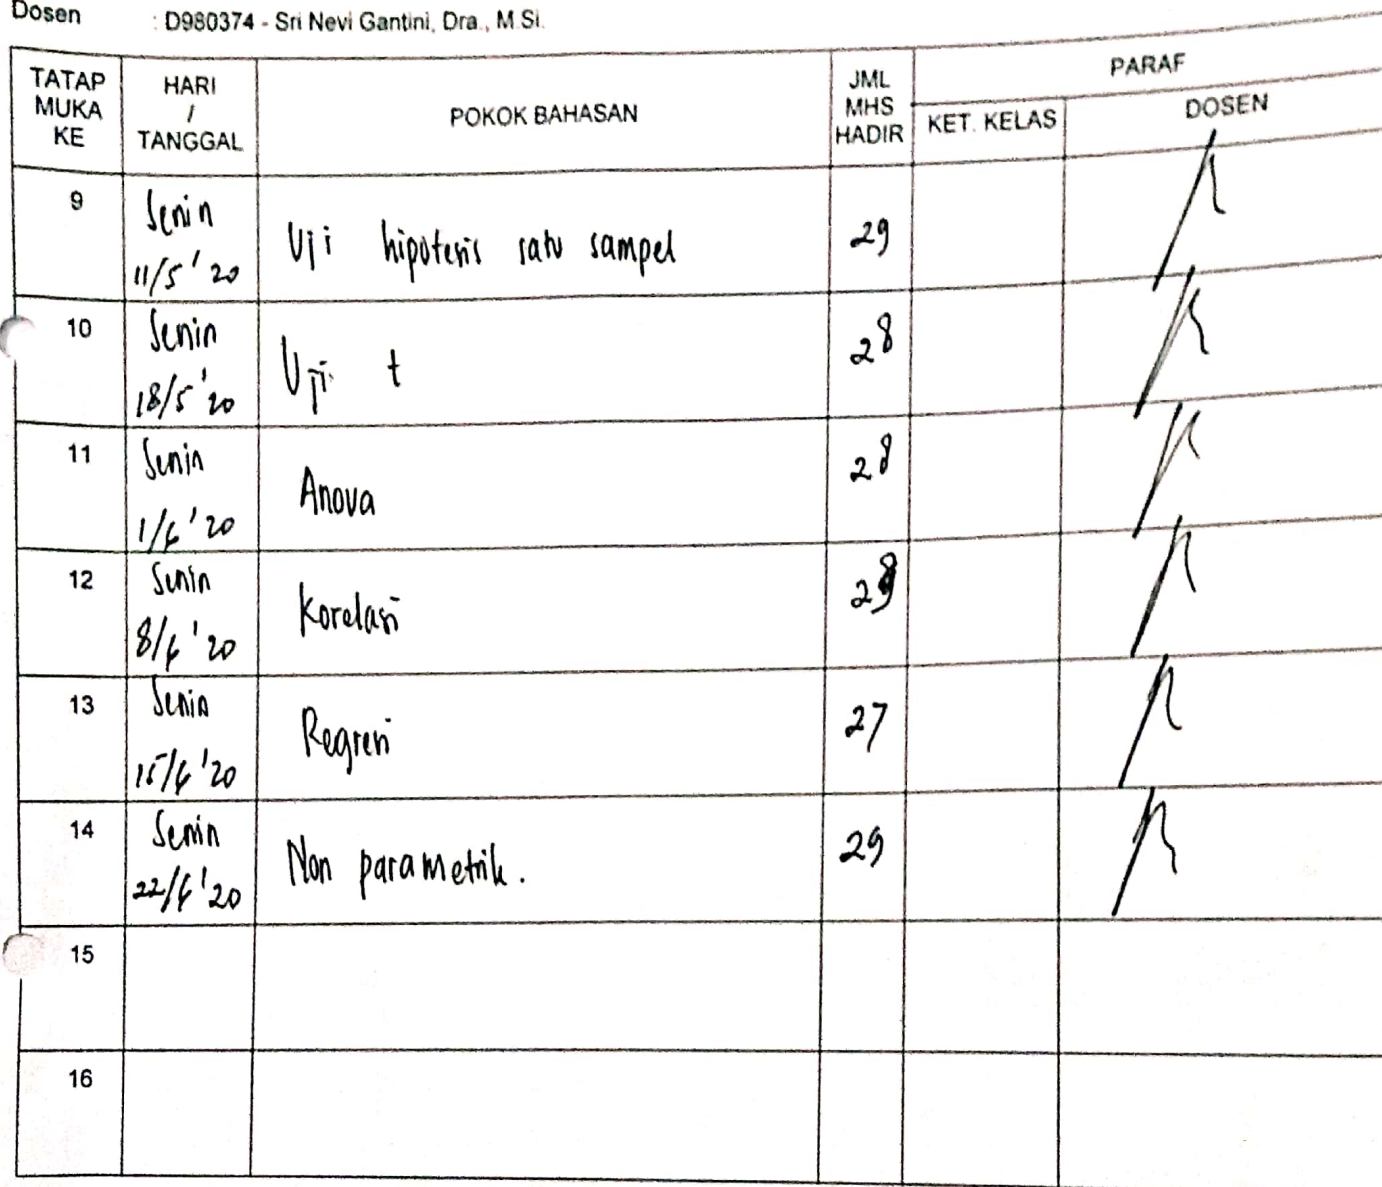 Dosen : D980374 - Sri Nevi Gantini, Dra., M.Si.
TATAP MUKA KE
HARI / TANGGAL
POKOK BAHASAN
JML MHS HADIR
PARAF
KET. KELAS
DOSEN
9 Senin 11/5 '20 Uji hipotesis satu sampel 29
10 Senin 18/5 '20 Uji t 28
11 Senin 1/6 '20 Anova 28
12 Senin 8/6 '20 Korelasi
13 Senin 15/6 '20 Regresi 27
14 Senin 22/6 '20 Non parametrik. 29
15
16